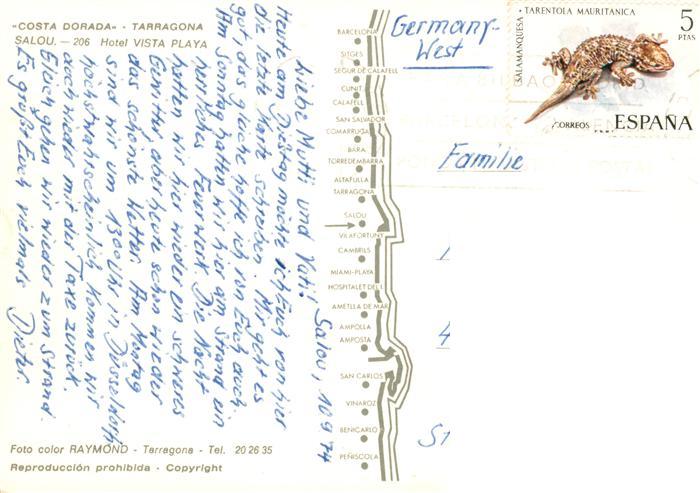 «COSTA DORADA» - TARRAGONA
SALOU. — 206 Hotel VISTA PLAYA
Salou, 10.9.74
Liebe Mutti und Vati!
Heute am Dienstag möchte ich Euch von hier
die letzte Karte schreiben. Mir geht es
gut das gleiche hoffe ich von Euch auch.
Am Sonntag hatten wir hier am Strand ein
herrliches Feuerwerk. Die Nacht
hatten wir hier wieder ein schweres
Gewitter aber heute schon wieder
das schönste Wetter. Am Montag
sind wir um 1300 Uhr in Düsseldorf
höchstwahrscheinlich kommen wir
auch wieder mit der Taxe zurück.
Gleich gehen wir wieder zum Strand.
Es grüßt Euch vielmals Dieter.
Foto color RAYMOND - Tarragona - Tel. 20 26 35
Reproducción prohibida - Copyright
BARCELONA
SITGES
SEGUR DE CALAFELL
CUNIT
CALAFELL
SAN SALVADOR
COMARRUGA
BARA
TORREDEMBARRA
ALTAFULLA
TARRAGONA
SALOU
VILAFORTUNY
CAMBRILS
MIAMI-PLAYA
HOSPITALET DEL I.
AMETLLA DE MAR
AMPOLLA
AMPOSTA
SAN CARLOS
VINAROZ
BENICARLO
PEÑISCOLA
Germany-
West
Familie
4
St
SALAMANQUESA - TARENTOLA MAURITANICA
5
PTAS
CORREOS
ESPAÑA